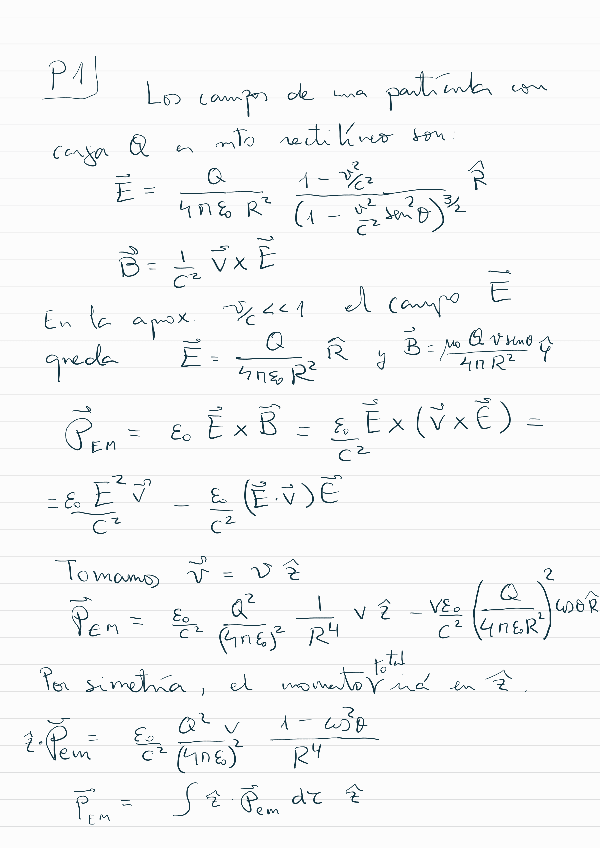 P1
Los campos de una partícula con
carga Q en mto rectilíneo son:
\vec{E} = \frac{Q}{4πε₀ R²} \frac{1 - v²/c²}{(1 - \frac{v²}{c²} sen²θ)^{3/2}} \hat{R}
\vec{B} = \frac{1}{c²} \vec{v} × \vec{E}
En la aprox. v/c << 1 el campo \vec{E}
queda \vec{E} = \frac{Q}{4πε₀ R²} \hat{R} y \vec{B} = \frac{μ₀ Q v senθ}{4π R²} \hat{φ}
\vec{P}_{EM} = ε₀ \vec{E} × \vec{B} = \frac{ε₀}{c²} \vec{E} × (\vec{v} × \vec{E}) =
= \frac{ε₀ E²}{c²} \vec{v} - \frac{ε₀}{c²} (\vec{E} · \vec{v}) \vec{E}
Tomamos \vec{v} = v \hat{z}
\vec{P}_{EM} = \frac{ε₀}{c²} \frac{Q²}{(4πε₀)²} \frac{1}{R⁴} v \hat{z} - \frac{vε₀}{c²} (\frac{Q}{4πε₀R²})² cosθ \hat{R}
Por simetría, el momento total irá en \hat{z}.
\hat{z} · \vec{P}_{em} = \frac{ε₀}{c²} \frac{Q² v}{(4πε₀)²} \frac{1 - cos²θ}{R⁴}
\vec{p}_{EM} = ∫ \hat{z} · \vec{P}_{em} dτ \hat{z}